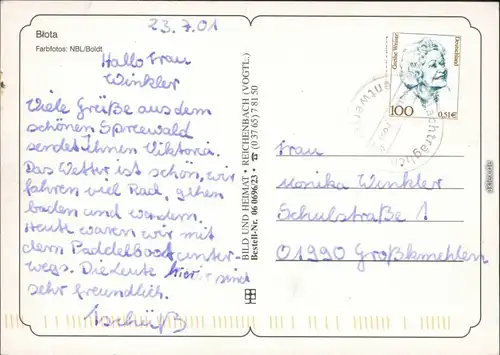 23.7.01
Błota
Farbfotos: NBL/Boldt
Hallo Frau
Winkler
Viele Grüße aus dem
schönen Spreewald
sendet Ihnen Viktoria.
Das Wetter ist schön, wir
fahren viel Rad, gehen
baden und wandern.
Heute waren wir mit
dem Paddelboot unter-
wegs. Die Leute hier sind
sehr freundlich.
Tschüß
BILD UND HEIMAT • REICHENBACH (VOGTL.)
Bestell-Nr. 06 0696/23 • ☎ (0 37 65) 7 81 50
Grethe Weiser
Deutschland
100
0,51€
nachträglich
entwertet
Frau
Monika Winkler
Schulstraße 1
01990 Großkmehlen